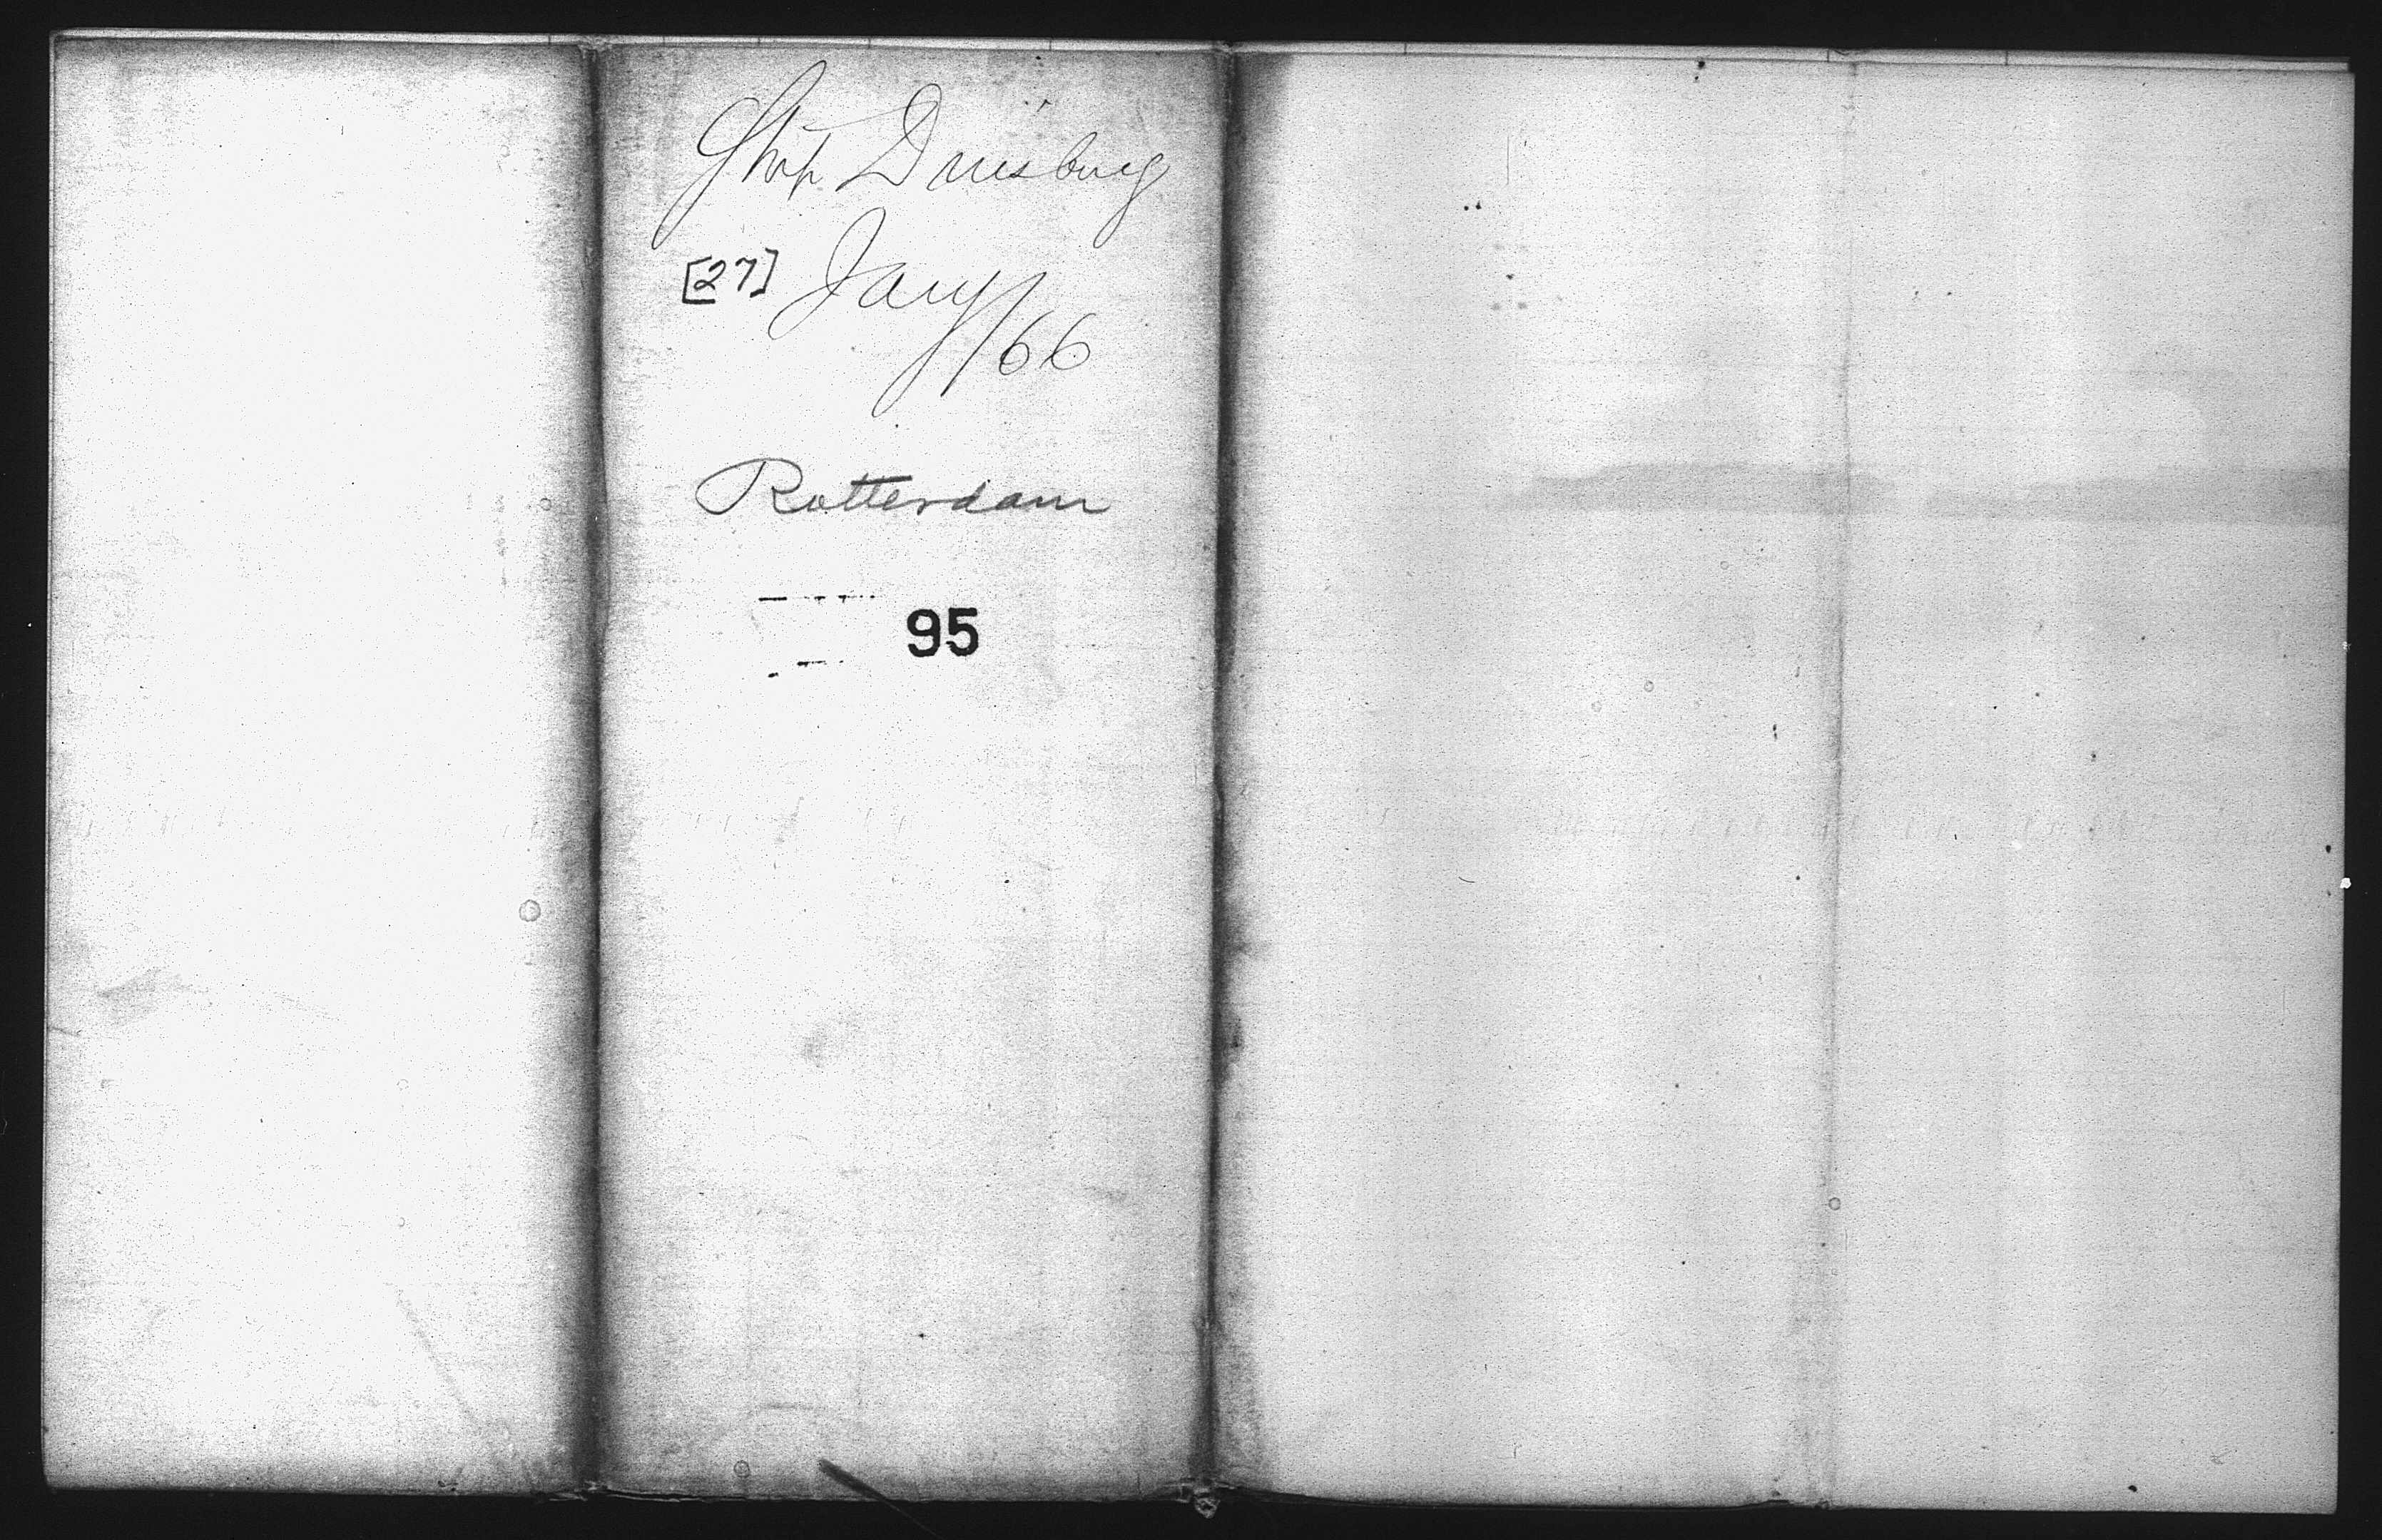 Ship Duisburg
[27] Jany
/66
Rotterdam
95